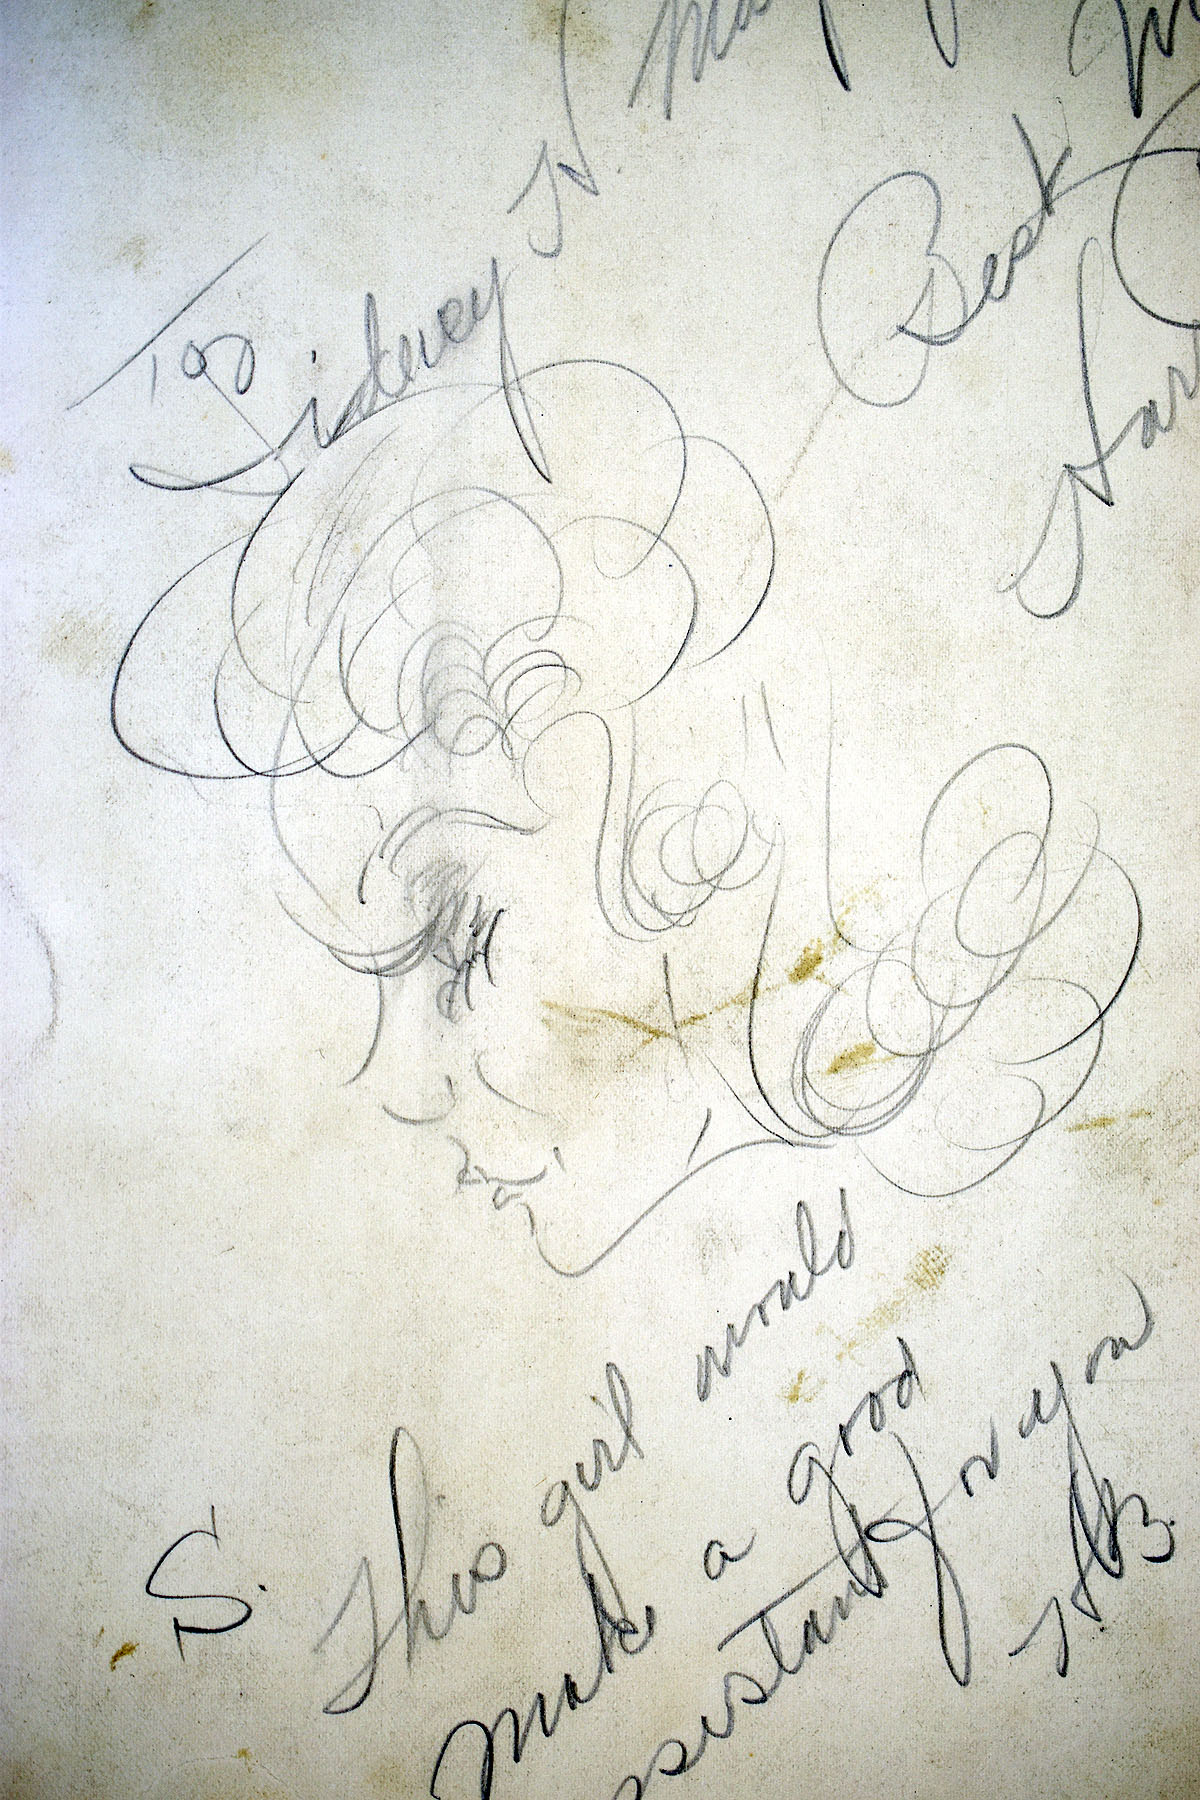 To
Sidney H.
Best
S. This girl would
make a good
ssistant for you
H.B.